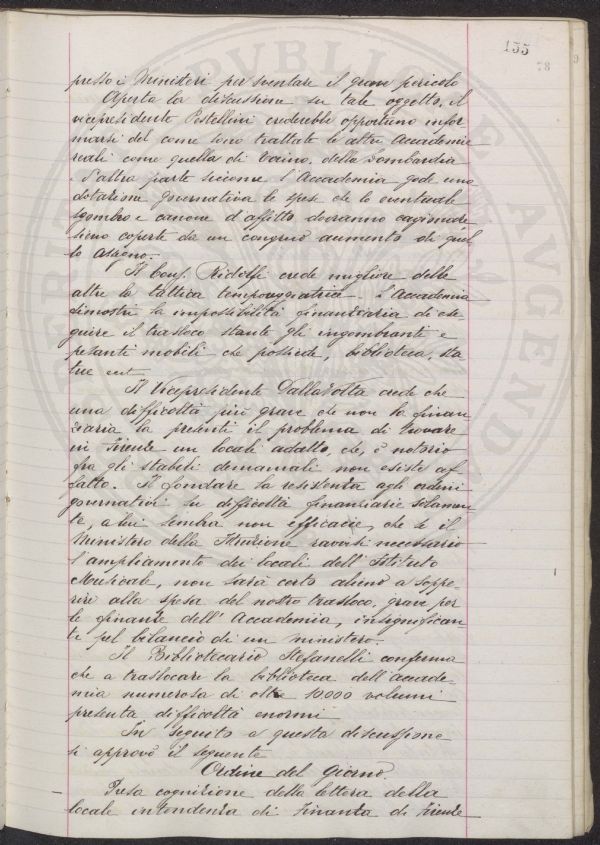 155
78
presso i Ministeri per sventare il grave pericolo
Aperta la discussione su tale oggetto, il
vicepresidente Pestellini crederebbe opportuno infor
marsi del come sono trattate le altre Accademie
reali come quella di Torino, della Lombardia
D'altra parte siccome l'Accademia gode una
dotazione governativa le spese che lo eventuale
sgombro e canone d'affitto dovranno cagionare,
sieno coperte da un congruo aumento di quel
lo assegno.-
Il Cons. Ridolfi crede migliore delle
altre la tattica temporeggiatrice. L'Accademia
dimostri la impossibilità finanziaria di ese
guire il trasloco stante gli ingombranti e
pesanti mobili che possiede, biblioteca, sta
tue ect.
Il Vicepresidente Dalla Volta crede che
una difficoltà più grave che non la finan
ziaria la presenti il problema di trovare
in Firenze un locale adatto, che, è notorio
fra gli stabili demaniali non esiste af
fatto. Il fondare la resistenza agli ordini
governativi su difficoltà finanziarie solamen
te, a lui sembra non efficace, che se il
Ministero della Istruzione ravvisi necessario
l'ampliamento dei locali dell'Istituto
Musicale, non sarà certo alieno a soppe-
rire alla spesa del nostro trasloco, grave per
le finanze dell'Accademia, insignifican
te pel bilancio di un ministero.-
Il Bibliotecario Stefanelli conferma
che a traslocare la biblioteca dell'accade-
mia numerosa di oltre 10000 volumi
presenta difficoltà enormi
In seguito a questa discussione
si approvò il seguente
Ordine del giorno.
Presa cognizione della lettera della
locale intendenza di Finanza di Firenze